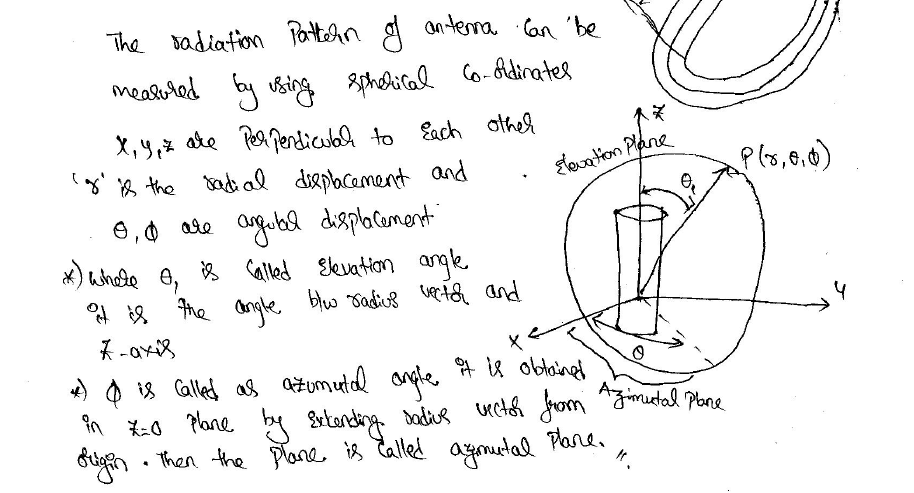 The radiation Pattern of antenna can be
measured by using spherical Co-ordinates
x, y, z are Perpendicular to Each other
'r' is the radial displacement and
θ, φ are angular displacement
*) where θ, is Called Elevation angle
it is the angle b/w radius vector and
Z-axis
*) φ is Called as azumutal angle it is obtained
in z=0 Plane by Extending radius vector from
origin. Then the Plane is Called azmutal Plane.
Z
Elevation Plane
P(r, θ, φ)
θ,
Y
X
θ
Azimutal Plane